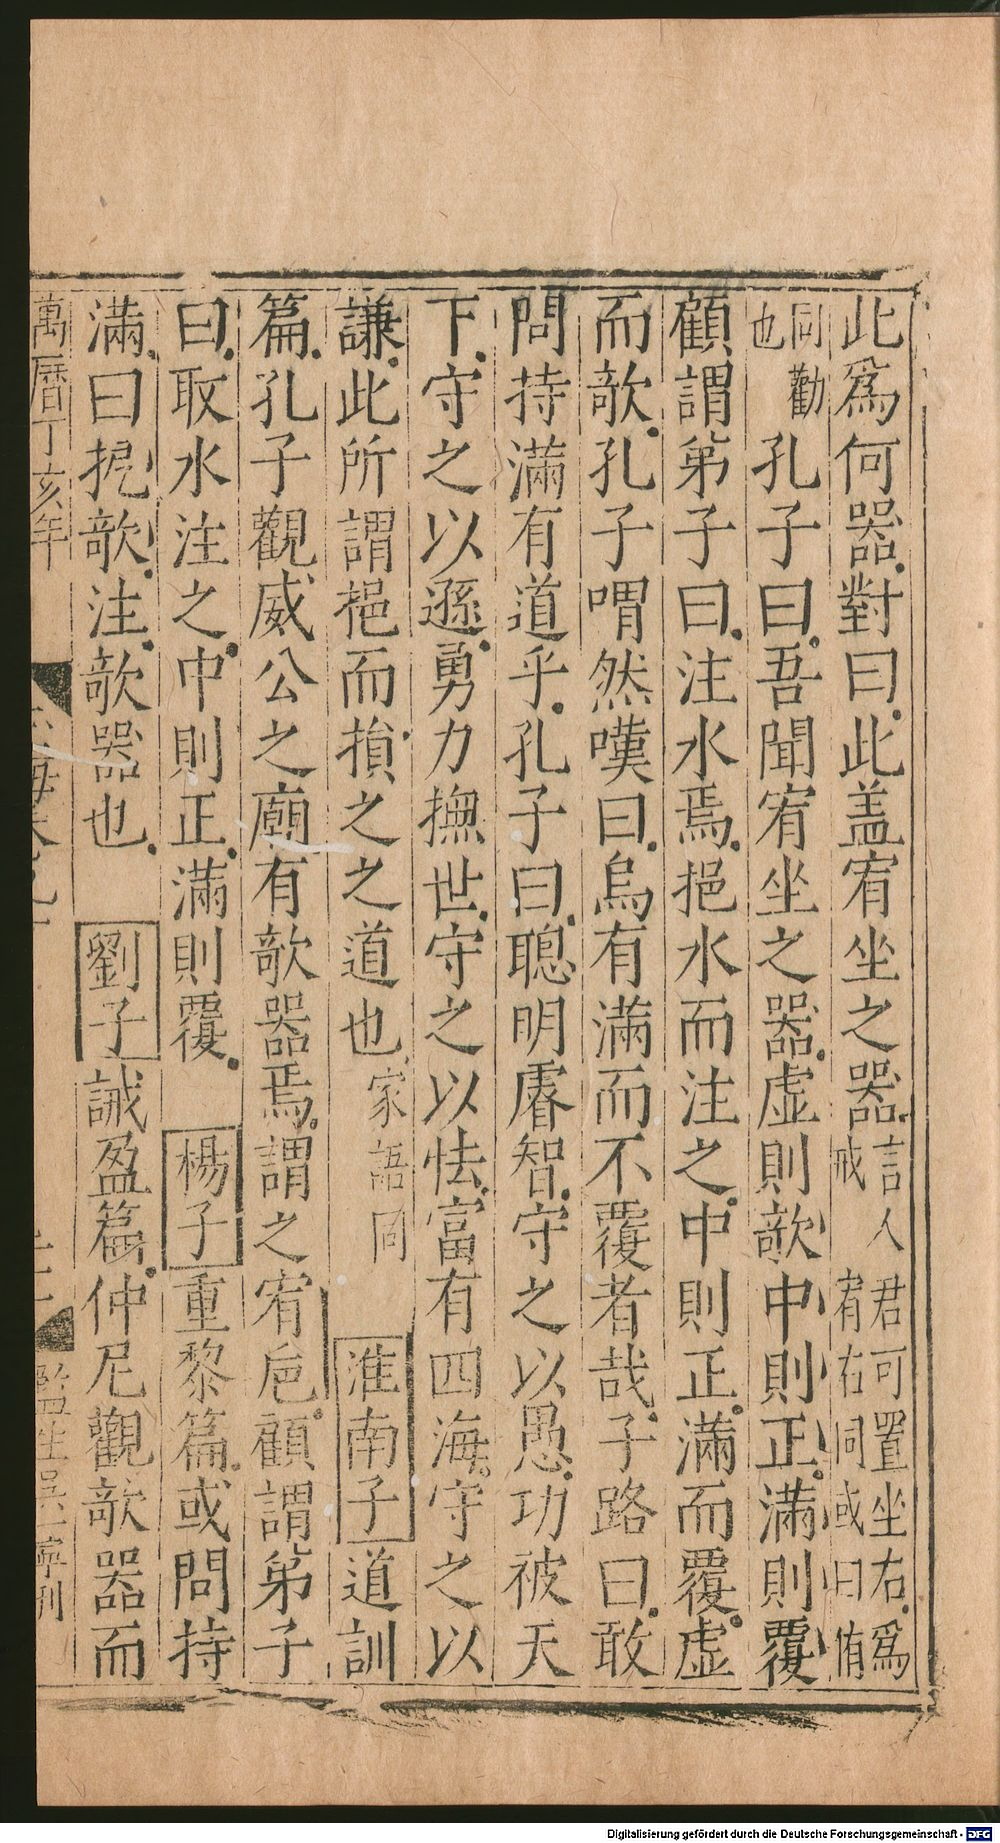 此爲何器對曰此盖宥坐之器言人君可置坐右爲戒宥右同或曰侑
同勸也孔子曰吾聞宥坐之器虛則欹中則正滿則覆
顧謂弟子曰注水焉挹水而注之中則正滿而覆虛
而欹孔子喟然嘆曰烏有滿而不覆者哉子路曰敢
問持滿有道乎孔子曰聰明睿智守之以愚功被天
下守之以遜勇力撫世守之以怯富有四海守之以
謙此所謂挹而損之之道也家語同淮南子道訓
篇孔子觀威公之廟有欹器焉謂之宥卮顧謂弟子
曰取水注之中則正滿則覆楊子重黎篇或問持
滿曰扼欹注欹器也劉子誡盈篇仲尼觀欹器而
萬曆丁亥年
監生吳一寧刊
Digitalisierung gefördert durch die Deutsche Forschungsgemeinschaft - DFG